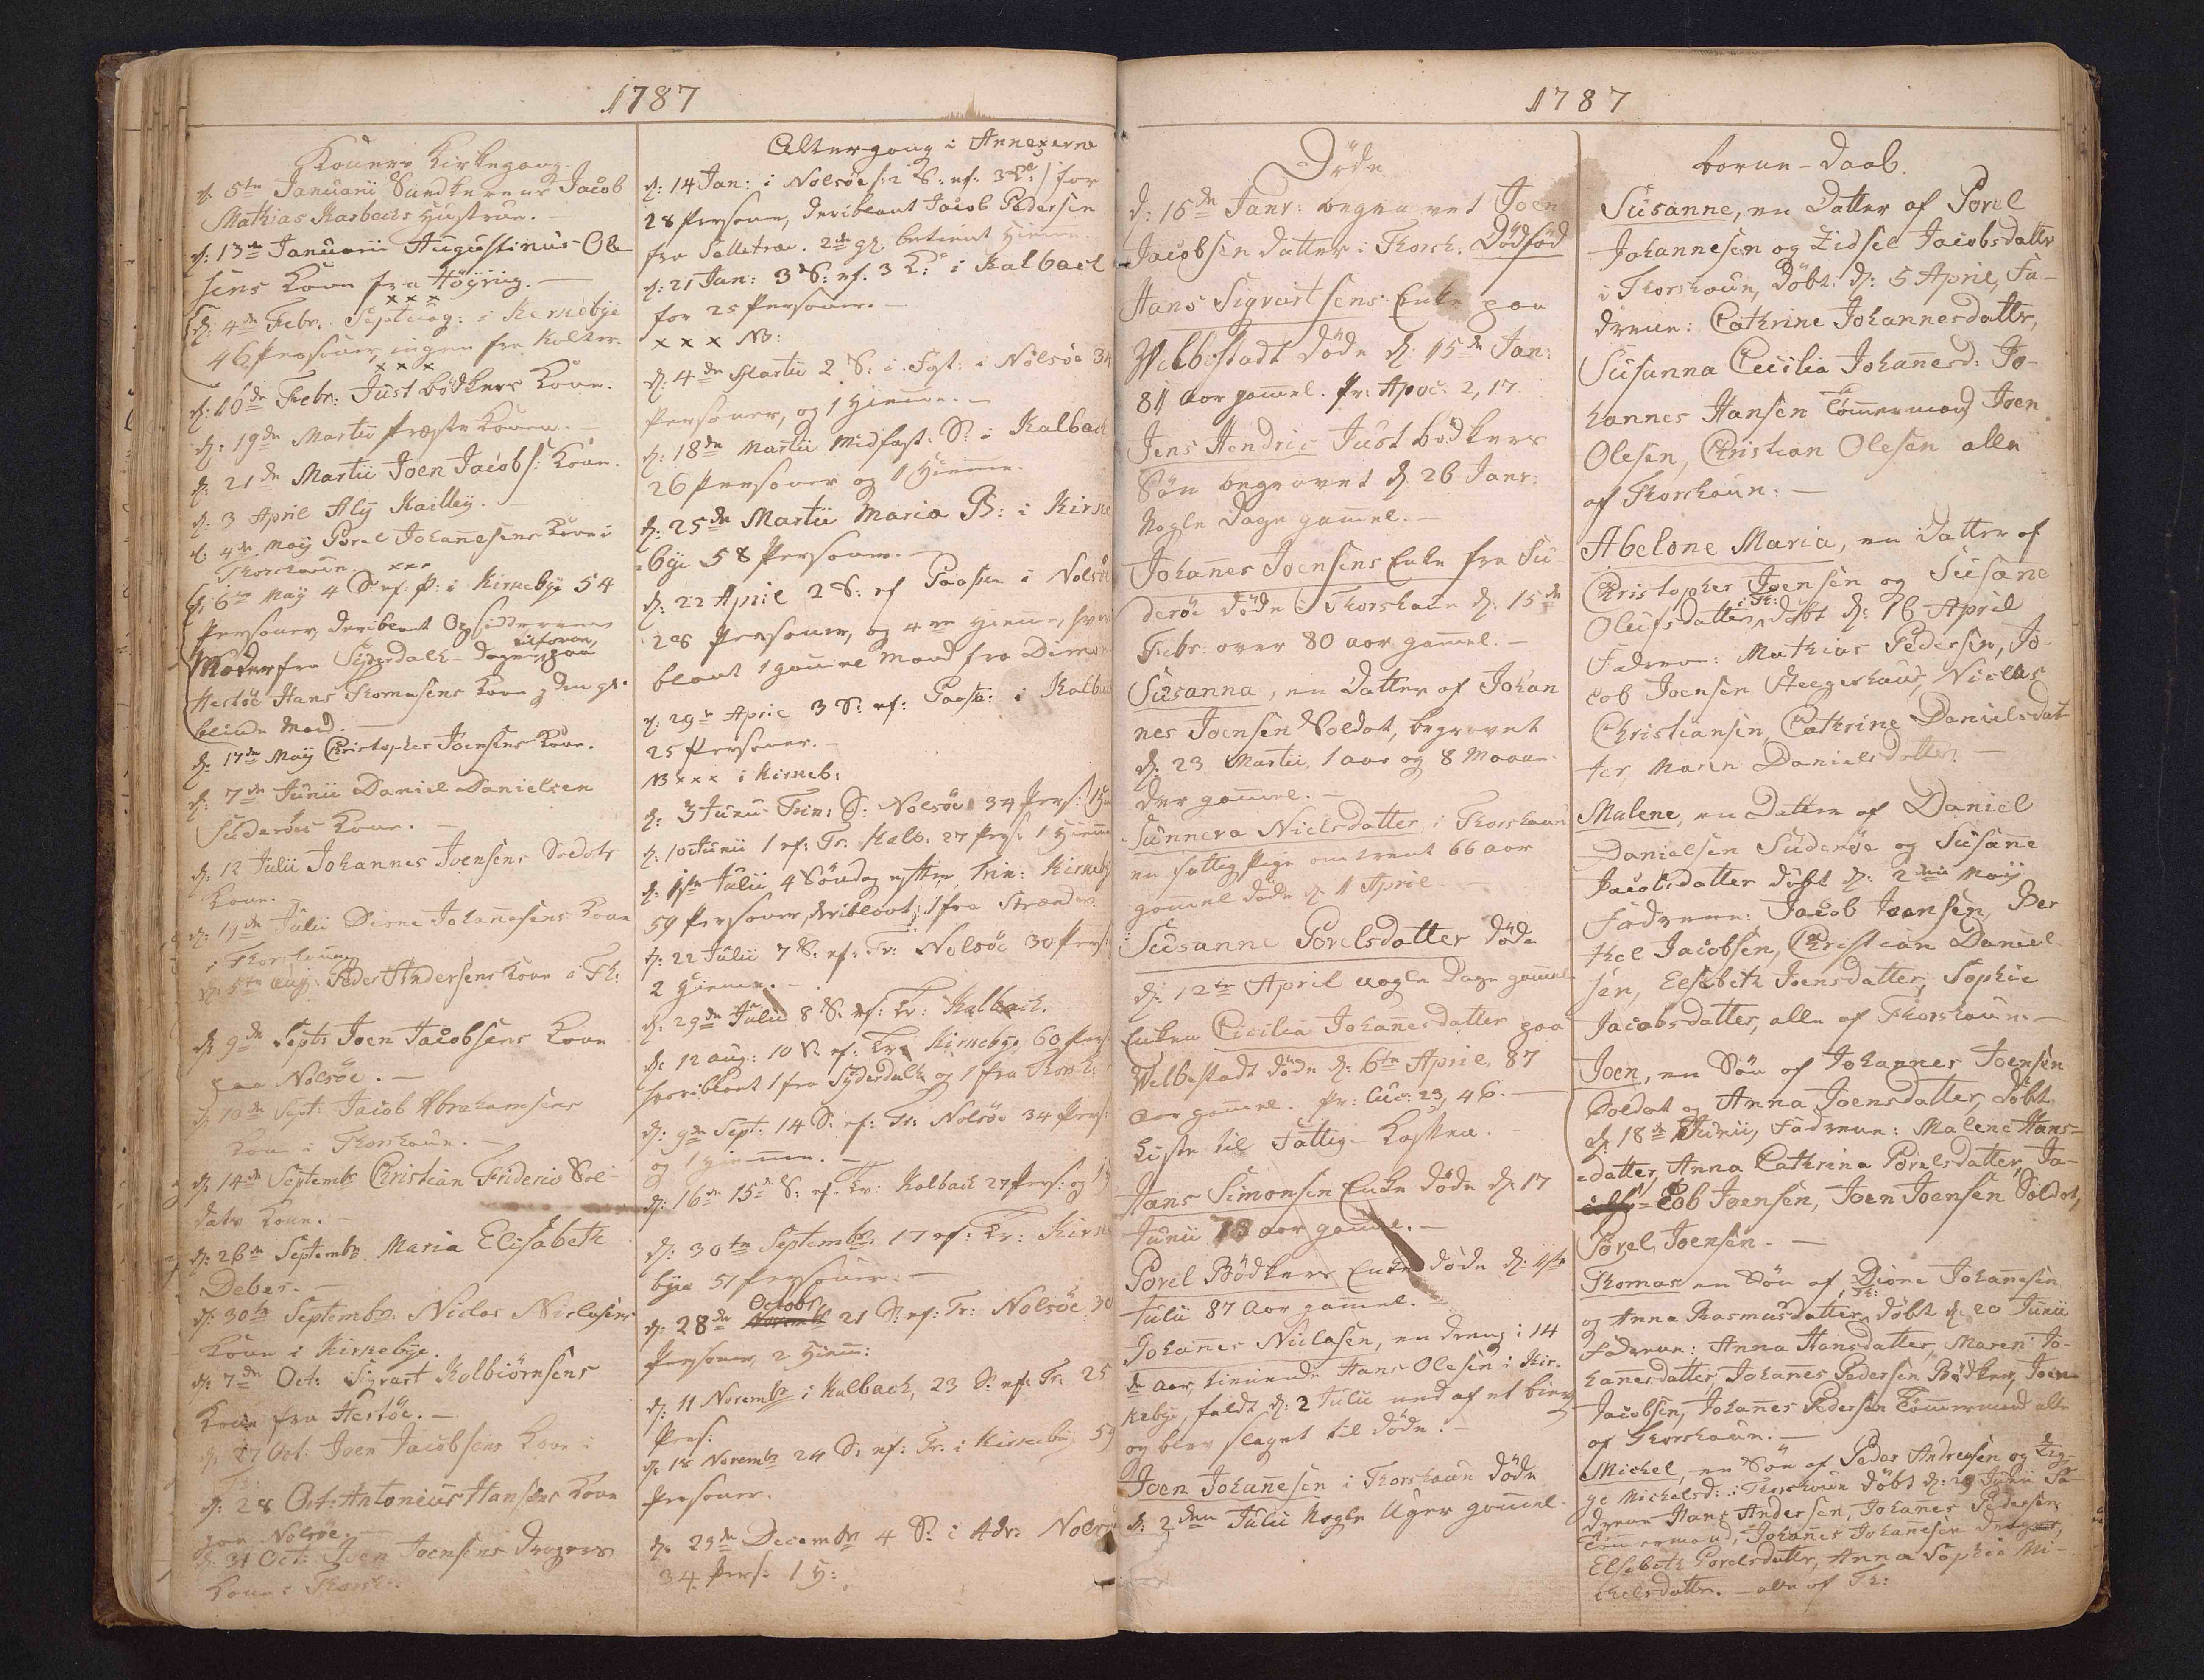 1787
Koners Kirkegang.
d. 5te Januarii Jacob
Mathias Hustrue.
d: 13de Januarii Augustinus Ole
sens Kone fra Höÿvig.
x x x
d: 4de Febr. Septuag: i Kirkebÿe
46 Personer, ingen fra Kolter.
x x x
d: 16de Febr: Just bödkers Kone.
d: 19de Martii Præste Konen.
d: 21de Martii Joen Jacobs: Kone.
d: 3 April
d: 4de Maÿ Porel Johanesens Kone i
Thorshaun. xxx
d: 6te Maÿ 4 S: ef. P: i Kirkebÿe 54
Personer, deriblant
Moder fra Sÿderdalh - Dagen tilforn, paa
Hestöe Hans Thomasens Kone og den gl.
blinde Mand.
d: 17de Maÿ Christopher Joensens Kone.
d: 7de Junii Daniel Danielsen
Suderöes Kone.
d: 12 Julii Johannes Joensens Soldats
Kone.
d: 19de Julii Dione Johanesens Kone
i Thorshaun.
d: 5te Aug: Peder Andersens Kone i Th:
d: 9de Septr Joen Jacobsens Kone
paa Nolsöe.
d: 10de Sept: Jacob Abrahamsens
Kone i Thorshaun.
d: 14de Septembr Christian Frideric Sol-
dats Kone.
d: 26de Septembr Maria Elisabeth
Debes.
d: 30te Septembr. Niclas Niclasens
Kone i Kirkebÿe.
d: 7de Oct: Sivart Kolbiörnsens
Kone fra Hestöe.
d: 27 Oct: Joen Jacobsens Kone i
Th:
d: 28 Oct: Antonius Hansens Kone
paa Nolsöe.
d: 31 Oct: Joen Joensens Dragers
Kone i Thorsh:
Altergang i Annexerne
d: 14 Jan: i Nolsöe /: 2 S: ef. 3 K: / for
28 Personer, deriblant Jacob Pedersen
fra 2de gl. betient Hiemme.
d: 21 Jan: 3 S: ef. 3 K: i Kalbach
for 25 Personer.
x x x NB:
d: 4de Martii 2 S: i Fast: i Nolsöe 34
Personer, og 1 Hiemme.
d: 18de Martii Midfast: S: i Kalbach
26 Personer og 1 Hiemme.
d: 25de Martii Maria B: i Kirke
bÿe 58 Personer.
d: 22 April 2 S: ef Paaske i Nolsöe
28 Personer, og 4re Hiemme, hvori
blant 1 gamel Mand fra
d: 29de April 3 S: ef: Paaske: i Kalbach
25 Personer.
NB xxx i Kirkeb:
d: 3 Junii Trin: S: Nolsöe 34 Pers: 1 Hiem
d: 10 Junii 1 ef: Tr: Kalb: 27 Pers: 1 Hiemme
d: 1ste Julii, 4 Söndag efter Trin: Kirkebÿ
59 Personer, deriblant 1 fra
d: 22 Julii 7 S: ef: Tr: Nolsöe 30 Pers:
2 Hiemme.
d: 29de Julii 8 S: ef: Tr: Kalbach.
d: 12 Aug: 10 S: ef: Tr: Kirkebÿe, 60 Pers:
hvoriblant 1 fra Sÿderdalh og 1 fra Thorsh:
d: 9de Sept: 14 S: ef: Tr: Nolsöe 34 Pers:
og 1 Hiemme.
d: 16de 15de S: ef. Tr: Kalbach 27 Pers: og 1
d: 30te Septembr: 17 ef: Tr: Kirke
bÿe 51 Personer.
d: 28de Octobr 21 S: ef: Tr: Nolsöe 30
Personer, 2 Hiem:
d: 11 Novembr i Kalbach, 23 S: ef: Tr: 25
Pers:
d: 18 Novembr 24 S: ef: Tr: i Kirkebÿe 59
Personer.
d: 23de Decembr 4 S: i Adv: Nolsöe
34 Pers: 1 H:
1787
Döde
d: 15de Janr: begravet Joen
Jacobsen datter i Thorsh: Dödföd
Hans Sigvartsens Enke paa
Welbestadt döde d: 15de Jan:
81 Aar gamel. Pr: Apoc: 2, 17.
Jens Hendric Just bödkers
Sön begravet d: 26 Janr:
Nogle Dage gamel.
Johanes Joensens Enke fra Su
deröe döde i Thorshaun d: 15de
Febr: over 80 aar gamel.
Susanna, en Datter af Johan
nes Joensen Soldat, begravet
d: 23 Martii, 1 aar og 8 Maane
der gamel.
Sunneva Nielsdatter i Thorshaun
en fattig Pige omtrent 66 aar
gamel döde d: 11 April.
Susanne Porelsdatter döde
d: 12te April nogle Dage gamel
Enken Cicilia Johanesdatter paa
Welbestadt döde d: 6te April, 87
Aar gamel. Pr: Luc: 23, 46.
Kiste til Fattig-Kassen.
Hans Simonsen Enke döde d: 17
Junii 73 aar gamel.
Porel Bödkers Enke döde d: 1ste
Julii 87 Aar gamel.
Johanes Niclasen, en dreng i 14
de Aar, tienende Hans Olesen i Kir-
kebÿe, faldt d: 2 Julii ned af et bierg
og blev slaget til döde.
Joen Johanesen i Thorshaun döde
d: 2den Julii Nogle Uger gamel.
1787
börne-Daab.
Susanne, en Datter af Porel
Johannesen og Zidsel Jacobsdatter
i Thorshaun, döbt d: 5 April, Fa-
drene: Cathrine Johannesdatter,
Susanna Cecilia Johanesd: Jo-
hannes Hansen Tömermand Joen
Olesen, Christian Olesen alle
af Thorshaun.
Abelone Maria, en Datter af
Christopher Joensen og Susane
Olufsdatter i Th: döbt d: 16 April
Fadrene: Mathias Pedersen, Ja-
cob Joensen Steegerhaus, Niclas
Christiansen, Cathrine Danielsdat
ter, Maren Danielsdatter.
Malene, en Datter af Daniel
Danielsen Suderöe og Susane
Jacobsdatter döbt d: 2den Maÿ
Fadrene: Jacob Joensen, Ber
thel Jacobsen, Christian Daniel
sen, Elsebeth Joensdatter, Sophie
Jacobsdatter, alle af Thorshaun.
Joen, en Sön af Johannes Joensen
Soldat og Anna Joensdatter, döbt
d: 18de Junii, Fadrene: Malene Hans-
datter, Anna Cathrina Porelsdatter, Ja-
cob Joensen, Joen Joensen Soldat,
Porel Joensen.
Thomas en Sön af Dione Johanesen
og Anna Rasmusdatter, Th: döbt d: 20 Junii
Fadrene: Anna Hansdatter, Maren Jo-
hanesdatter, Johanes Pedersen Bödker, Joen
Jacobsen, Johanes Pedersen Tömermand alle
af Thorshaun.
Michel, en Sön af Peder Andersen og Zig-
ge Michelsd: i Thorshaun döbt d: 29 Junii Fa
drene Hans Andersen, Johanes Pedersen
Tömermand, Johanes Johanesen drager,
Elsebeth Porelsdatter, Anna Sophie Mi-
chelsdatter. alle af Th: